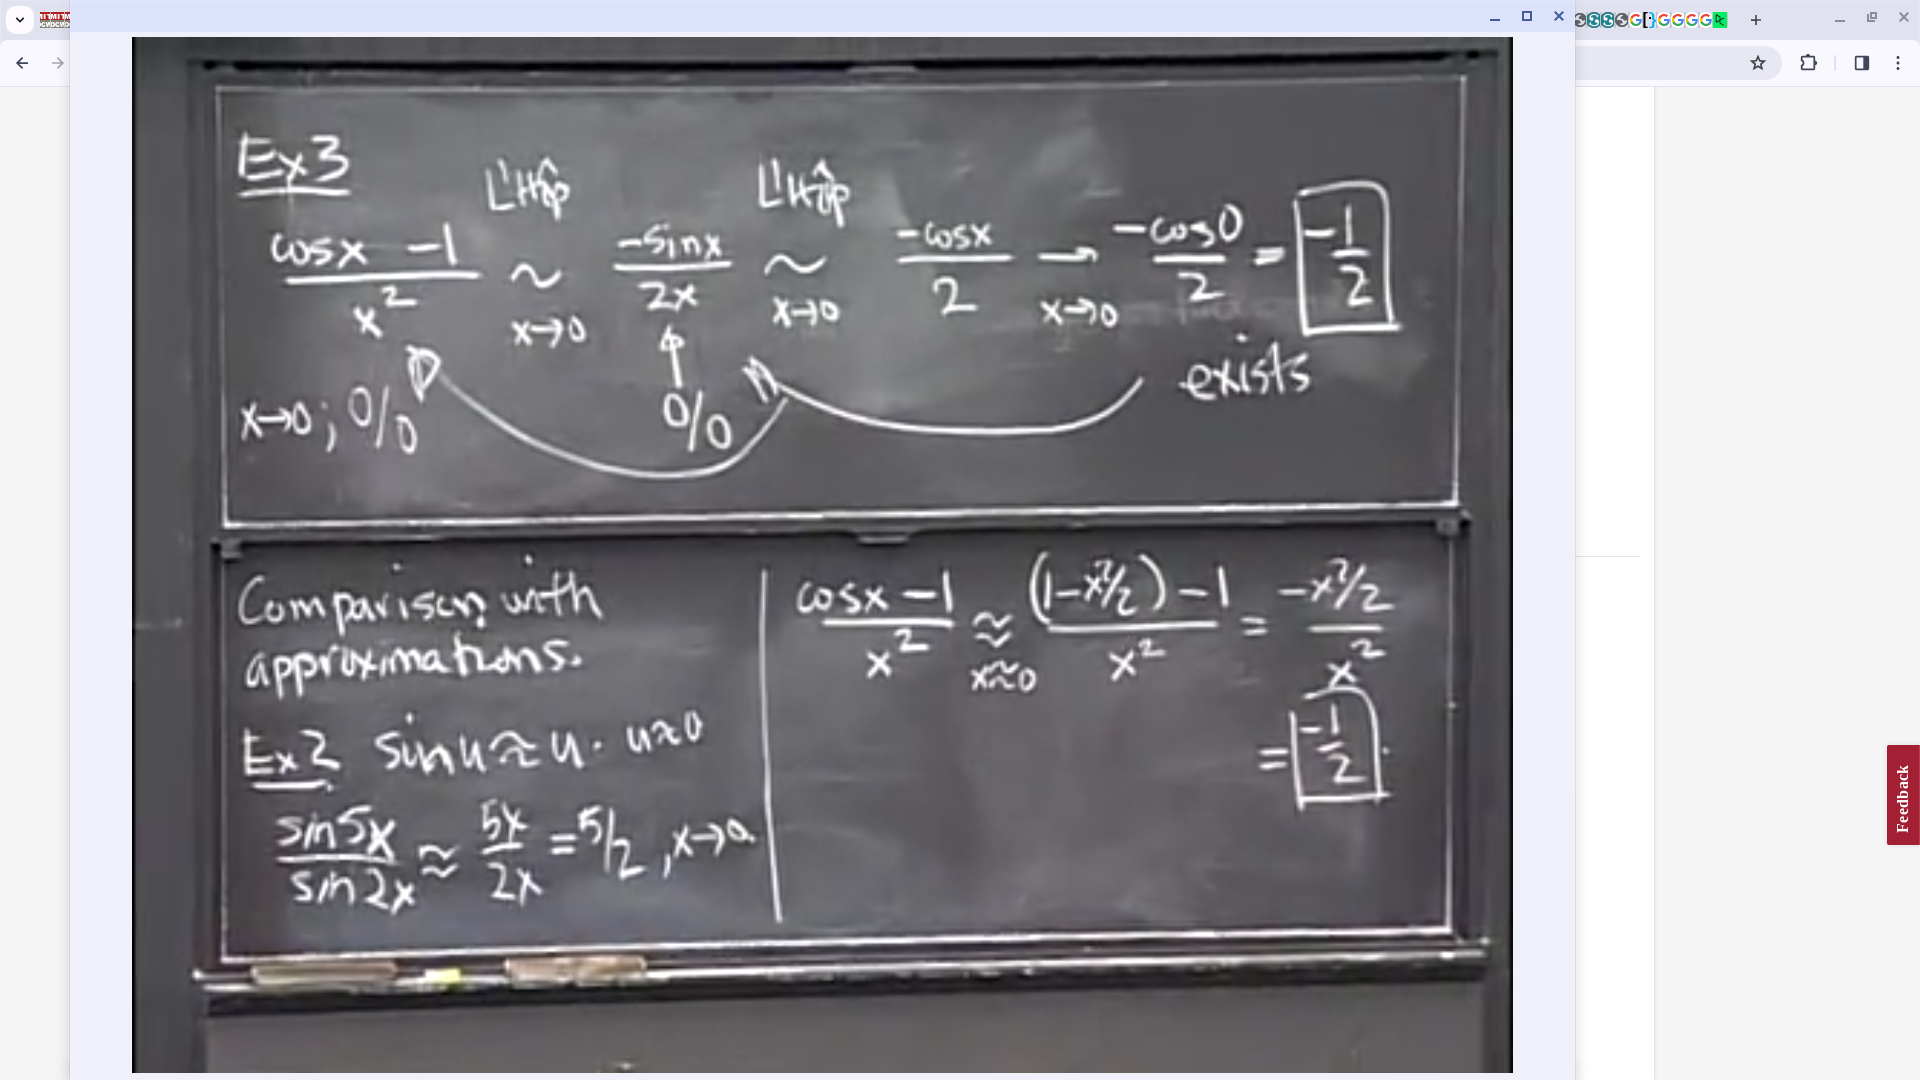 Ex3
L'Hôp L'Hôp
cosx -1 / x² ~ x→0 -sinx / 2x ~ x→0 -cosx / 2 → x→0 -cos0 / 2 = -1/2
exists
x→0; 0/0 0/0
Comparison with
approximations.
Ex2 sinu≈u. u≈0
sin5x / sin2x ≈ 5x / 2x = 5/2, x→0.
cosx -1 / x² ≈ x≈0 (1-x²/2) -1 / x² = -x²/2 / x²
= -1/2.
Feedback